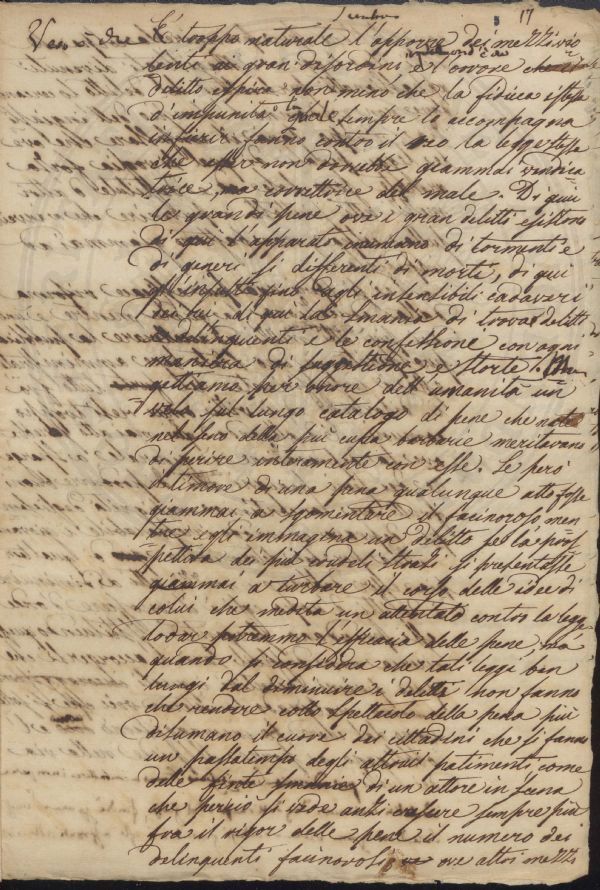 17
sembra
Vero è che È troppo naturale l'opporre dei mezzi vio
lenti ai gran disordini e l'orrore che
delitto che la fisica
d'impunità quale sempre lo accompagna
fanno contro il reo la legge stessa
che esser non dovrebbe giammai vendica
trice, ma correttrice del male. Di qui
le grandi pene ove i gran delitti esistono
di qui l'apparato inumano di tormenti e
di generi sì differenti di morte, di qui
gl'insulti fino agli insensibili cadaveri
dei rei di qui la smania di trovar delitti
e delinquenti e le confessione con ogni
maniera di suggestione e storte.
gettiamo per onore dell'umanità un
velo sul lungo catalogo di pene che nate
nel seno della più cupa barbarie meritavano
di perire interamente con esse. Se però
il timore di una pena qualunque atto fosse
giammai a sgomentare il facinoroso men
tre egli immagina un delitto se la pros
pettiva dei più crudeli strazi si presentasse
giammai a turbare il corso delle idee di
colui che medita un attentato contro la legge
lodar potremmo l'efficacia delle pene, ma
quando si considera che tali leggi ben
lungi dal diminuire i delitti non fanno
che rendere collo spettacolo della pena più
disumano il cuore dei cittadini che si fanno
un passatempo degli altrui patimenti come
delle finte smanie di un attore in scena
che perciò si vede anzi crescere sempre più
fra il rigor delle pene il numero dei
delinquenti facinorosi ove altri mezzi